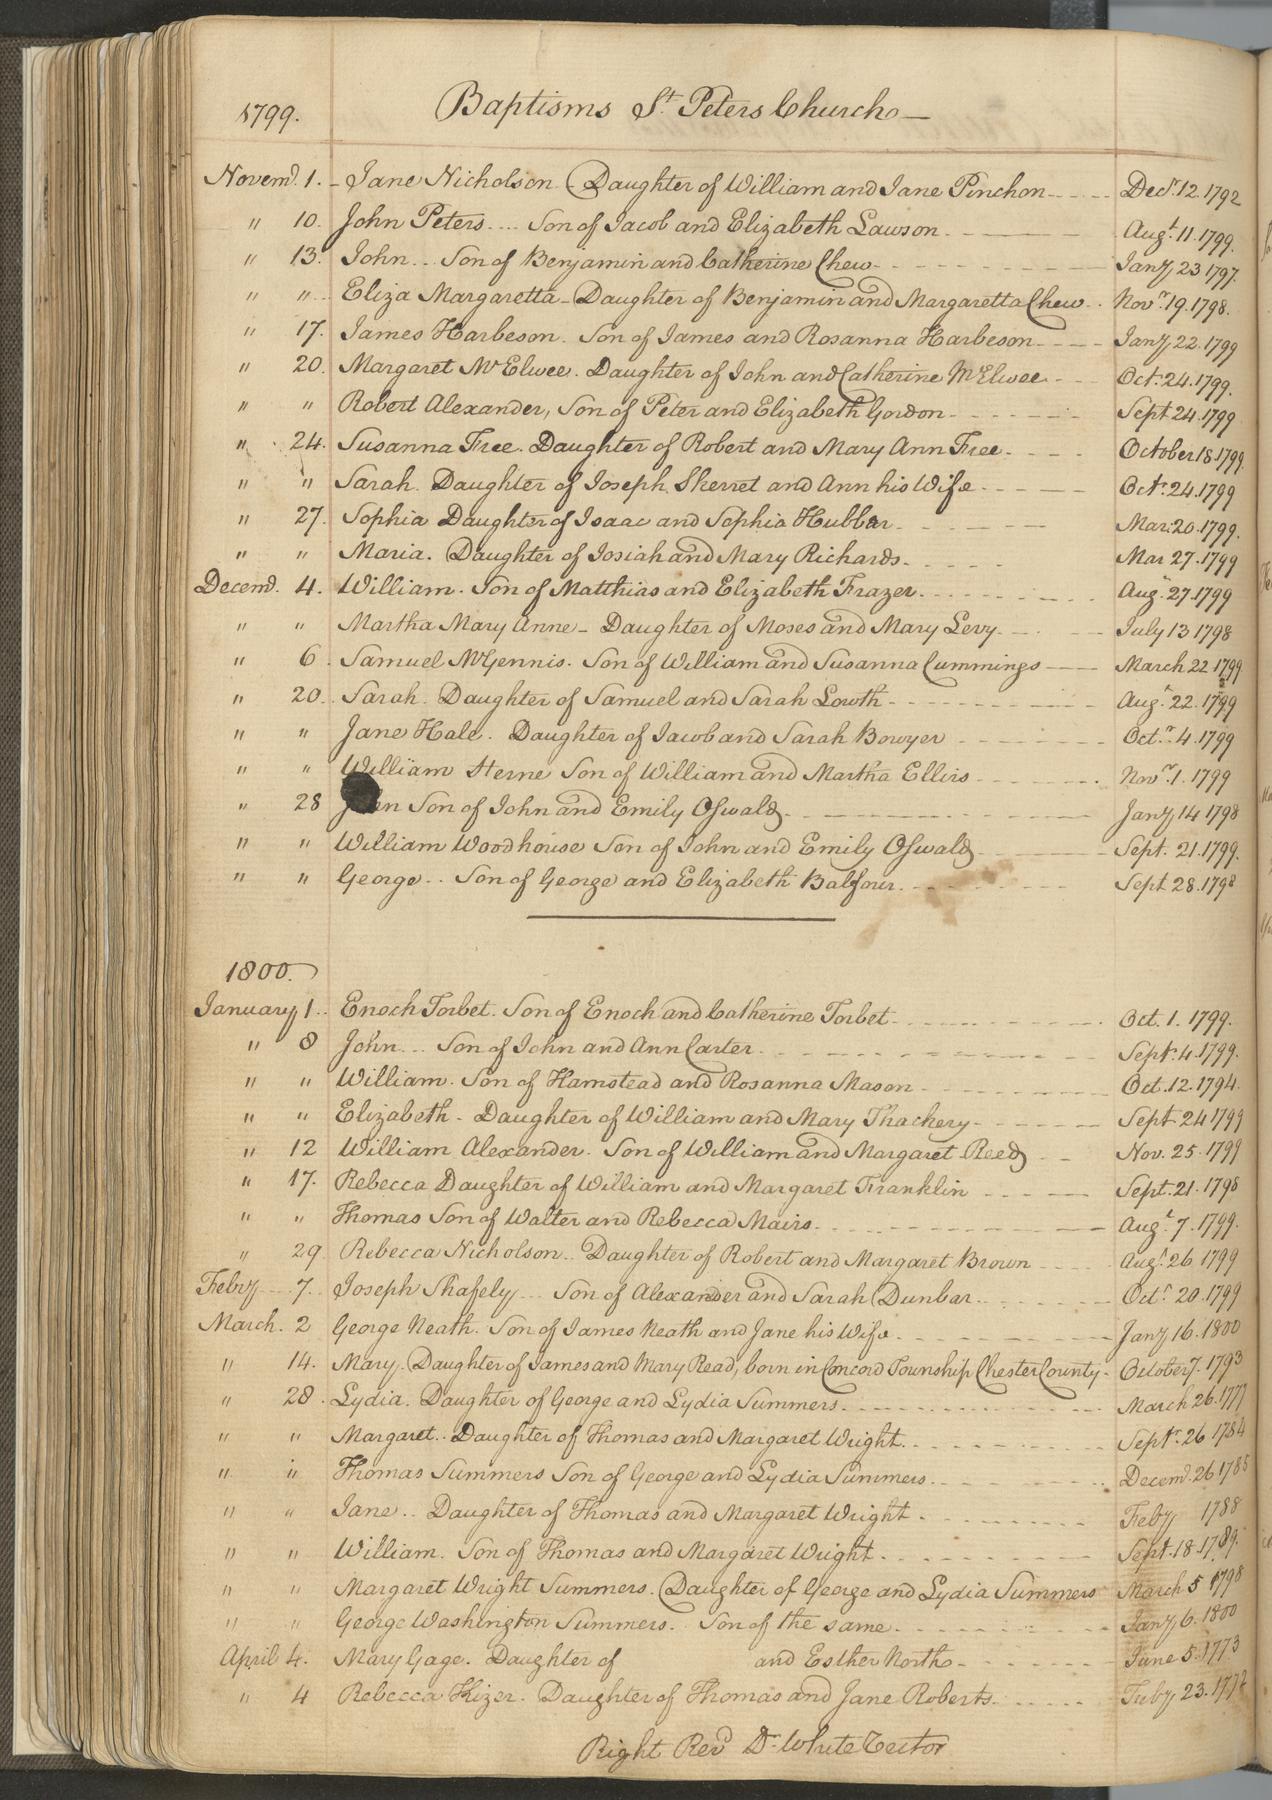 1799. Baptisms St. Peters Church
Novemd. 1. Jane Nicholson. Daughter of William and Jane Pinchon Decr. 12. 1792
" 10. John Peters. Son of Jacob and Elizabeth Lawson Augt. 11. 1799.
" 13. John. Son of Benjamin and Catherine Chew Jany 23 1797.
" " Eliza Margaretta - Daughter of Benjamin and Margaretta Chew Novr. 19. 1798.
" 17. James Harbeson. Son of James and Rosanna Harbeson Jany 22. 1799
" 20. Margaret McElwee. Daughter of John and Catherine McElwee Octr. 24. 1799.
" " Robert Alexander, Son of Peter and Elizabeth Gordon Sept 24. 1799
" 24. Susanna Free. Daughter of Robert and Mary Ann Free October 18. 1799.
" " Sarah. Daughter of Joseph Sherret and Ann his Wife Octr. 24. 1799
" 27. Sophia Daughter of Isaac and Sophia Hubbar Mar. 20. 1799.
" " Maria. Daughter of Josiah and Mary Richards Mar 27. 1799
Decemd. 4. William. Son of Matthias and Elizabeth Frazer Aug. 27. 1799
" " Martha Mary Anne - Daughter of Moses and Mary Levy July 13 1798
" 6. Samuel McGennis. Son of William and Susanna Cummings March 22 1799
" 20. Sarah. Daughter of Samuel and Sarah Lowth Augt. 22. 1799
" " Jane Hale. Daughter of Jacob and Sarah Bowyer Octr. 4. 1799
" " William Sterne Son of William and Martha Ellirs Novr. 1. 1799
" 28 Son of John and Emily Oswald Jany 14 1798
" " William Woodhouse Son of John and Emily Oswald Sept. 21. 1799.
" " George. Son of George and Elizabeth Balfour Sept 28. 1798
1800.
January 1. Enoch Torbet. Son of Enoch and Catherine Torbet Oct. 1. 1799.
" 8 John. Son of John and Ann Carter Septr. 4. 1799.
" " William. Son of Hamstead and Rosanna Mason Oct. 12. 1794.
" " Elizabeth - Daughter of William and Mary Thackery Sept 24 1799
" 12 William Alexander. Son of William and Margaret Reed Nov. 25. 1799
" 17. Rebecca Daughter of William and Margaret Franklin Sept. 21. 1798
" " Thomas Son of Walter and Rebecca Mairs Augt. 7. 1799.
" 29 Rebecca Nicholson. Daughter of Robert and Margaret Brown Augt. 26 1799
Febry 7. Joseph Shafely Son of Alexander and Sarah Dunbar Octr. 20. 1799
March. 2 George Neath. Son of James Neath and Jane his Wife Jany 16. 1800
" 14. Mary. Daughter of James and Mary Read, born in Concord Township Chester County October 7. 1793
" 28. Lydia. Daughter of George and Lydia Summers March 26. 1777
" " Margaret. Daughter of Thomas and Margaret Wright Septr. 26 1784
" " Thomas Summers Son of George and Lydia Summers Decemd. 26 1785
" " Jane. Daughter of Thomas and Margaret Wright Feby 1788
" " William. Son of Thomas and Margaret Wright Sept. 18. 1789.
" " Margaret Wright Summers. Daughter of George and Lydia Summers March 5 1798
" " George Washington Summers. Son of the same Jany 6. 1800
April 4. Mary Gage. Daughter of and Esther North June 5. 1773
" 4 Rebecca Kizer. Daughter of Thomas and Jane Roberts 23.
Right Revd Dr. White Rector